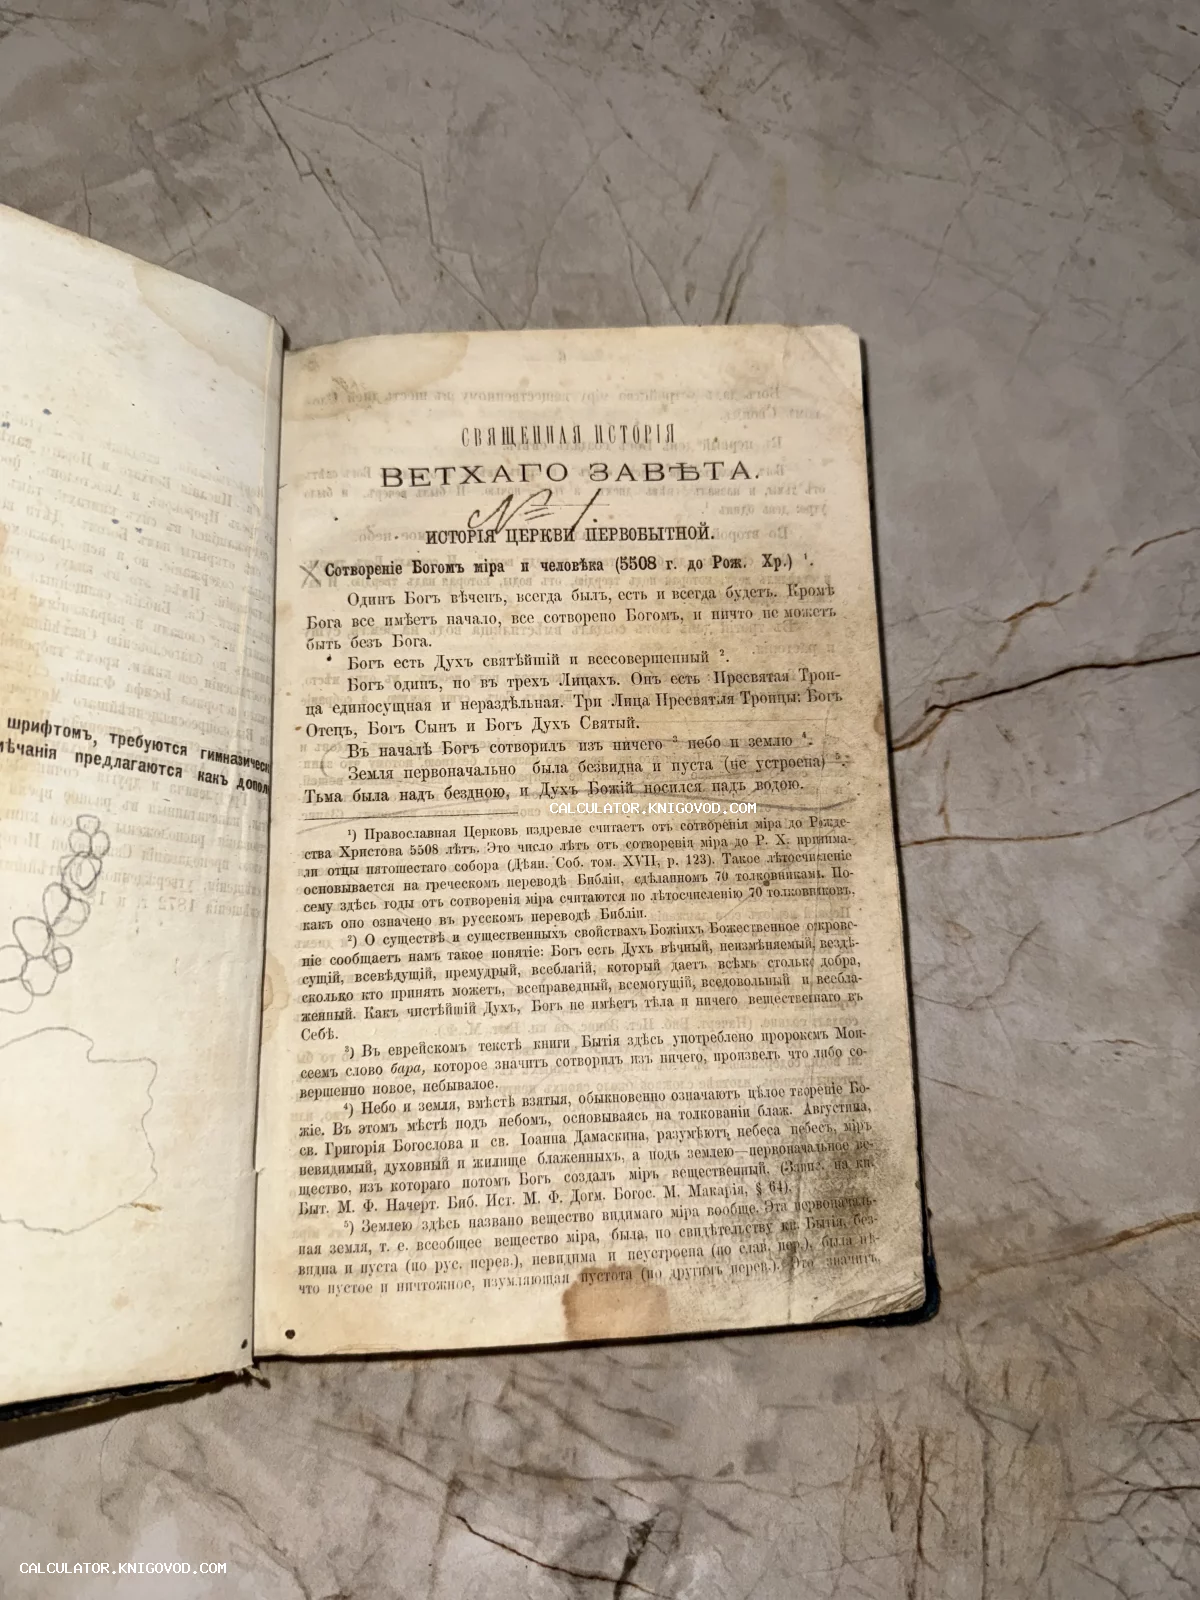 шрифтомъ, требуются гимназическ
мѣчанія предлагаются какъ допол
СВЯЩЕННАЯ ИСТОРІЯ
ВЕТХАГО ЗАВѢТА.
№ 1
ИСТОРІЯ ЦЕРКВИ ПЕРВОБЫТНОЙ.
Сотвореніе Богомъ міра и человѣка (5508 г. до Рож. Хр.) ¹.
Одинъ Богъ вѣченъ, всегда былъ, есть и всегда будетъ. Кромѣ
Бога все имѣетъ начало, все сотворено Богомъ, и ничто не можетъ
быть безъ Бога.
Богъ есть Духъ святѣйшій и всесовершенный ².
Богъ одинъ, но въ трехъ Лицахъ. Онъ есть Пресвятая Трои-
ца единосущная и нераздѣльная. Три Лица Пресвятыя Троицы: Богъ
Отецъ, Богъ Сынъ и Богъ Духъ Святый.
Въ началѣ Богъ сотворилъ изъ ничего ³ небо и землю ⁴.
Земля первоначально была безвидна и пуста (не устроена) ⁵.
Тьма была надъ бездною, и Духъ Божій носился надъ водою.
CALCULATOR.KNIGOVOD.COM
¹) Православная Церковь издревле считаетъ отъ сотворенія міра до Рожде-
ства Христова 5508 лѣтъ. Это число лѣтъ отъ сотворенія міра до Р. Х. принима-
ли отцы пятошестаго собора (Дѣян. Соб. том. XVII, p. 123). Такое лѣтосчисленіе
основывается на греческомъ переводѣ Библіи, сдѣланномъ 70 толковниками. По-
сему здѣсь годы отъ сотворенія міра считаются по лѣтосчисленію 70 толковниковъ,
какъ оно означено въ русскомъ переводѣ Библіи.
²) О существѣ и существенныхъ свойствахъ Божіихъ Божественное открове-
ніе сообщаетъ намъ такое понятіе: Богъ есть Духъ вѣчный, неизмѣняемый, вездѣ-
сущій, всевѣдущій, премудрый, всеблагій, который даетъ всѣмъ столько добра,
сколько кто принять можетъ, всеправедный, всемогущій, вседовольный и всебла-
женный. Какъ чистѣйшій Духъ, Богъ не имѣетъ тѣла и ничего вещественнаго въ
Себѣ.
³) Въ еврейскомъ текстѣ книги Бытія здѣсь употреблено пророкомъ Мои-
сеемъ слово бара, которое значитъ сотворилъ изъ ничего, произвелъ что либо со-
вершенно новое, небывалое.
⁴) Небо и земля, вмѣстѣ взятыя, обыкновенно означаютъ цѣлое твореніе Бо-
жіе. Въ этомъ мѣстѣ подъ небомъ, основываясь на толкованіи блаж. Августина,
св. Григорія Богослова и св. Іоанна Дамаскина, разумѣютъ небеса небесъ, міръ
невидимый, духовный и жилище блаженныхъ, а подъ землею—первоначальное ве-
щество, изъ котораго потомъ Богъ создалъ міръ вещественный. (Запис. на кн.
Быт. М. Ф. Начерт. Биб. Ист. М. Ф. Догм. Богос. М. Макарія, § 64).
⁵) Землею здѣсь названо вещество видимаго міра вообще. Эта первоначаль-
ная земля, т. е. всеобщее вещество міра, была, по свидѣтельству кн. Бытія, без-
видна и пуста (по рус. перев.), невидима и неустроена (по слав. пер.), была нѣ-
что пустое и ничтожное, изумляющая пустота (по другимъ перев.). Это значитъ,
CALCULATOR.KNIGOVOD.COM